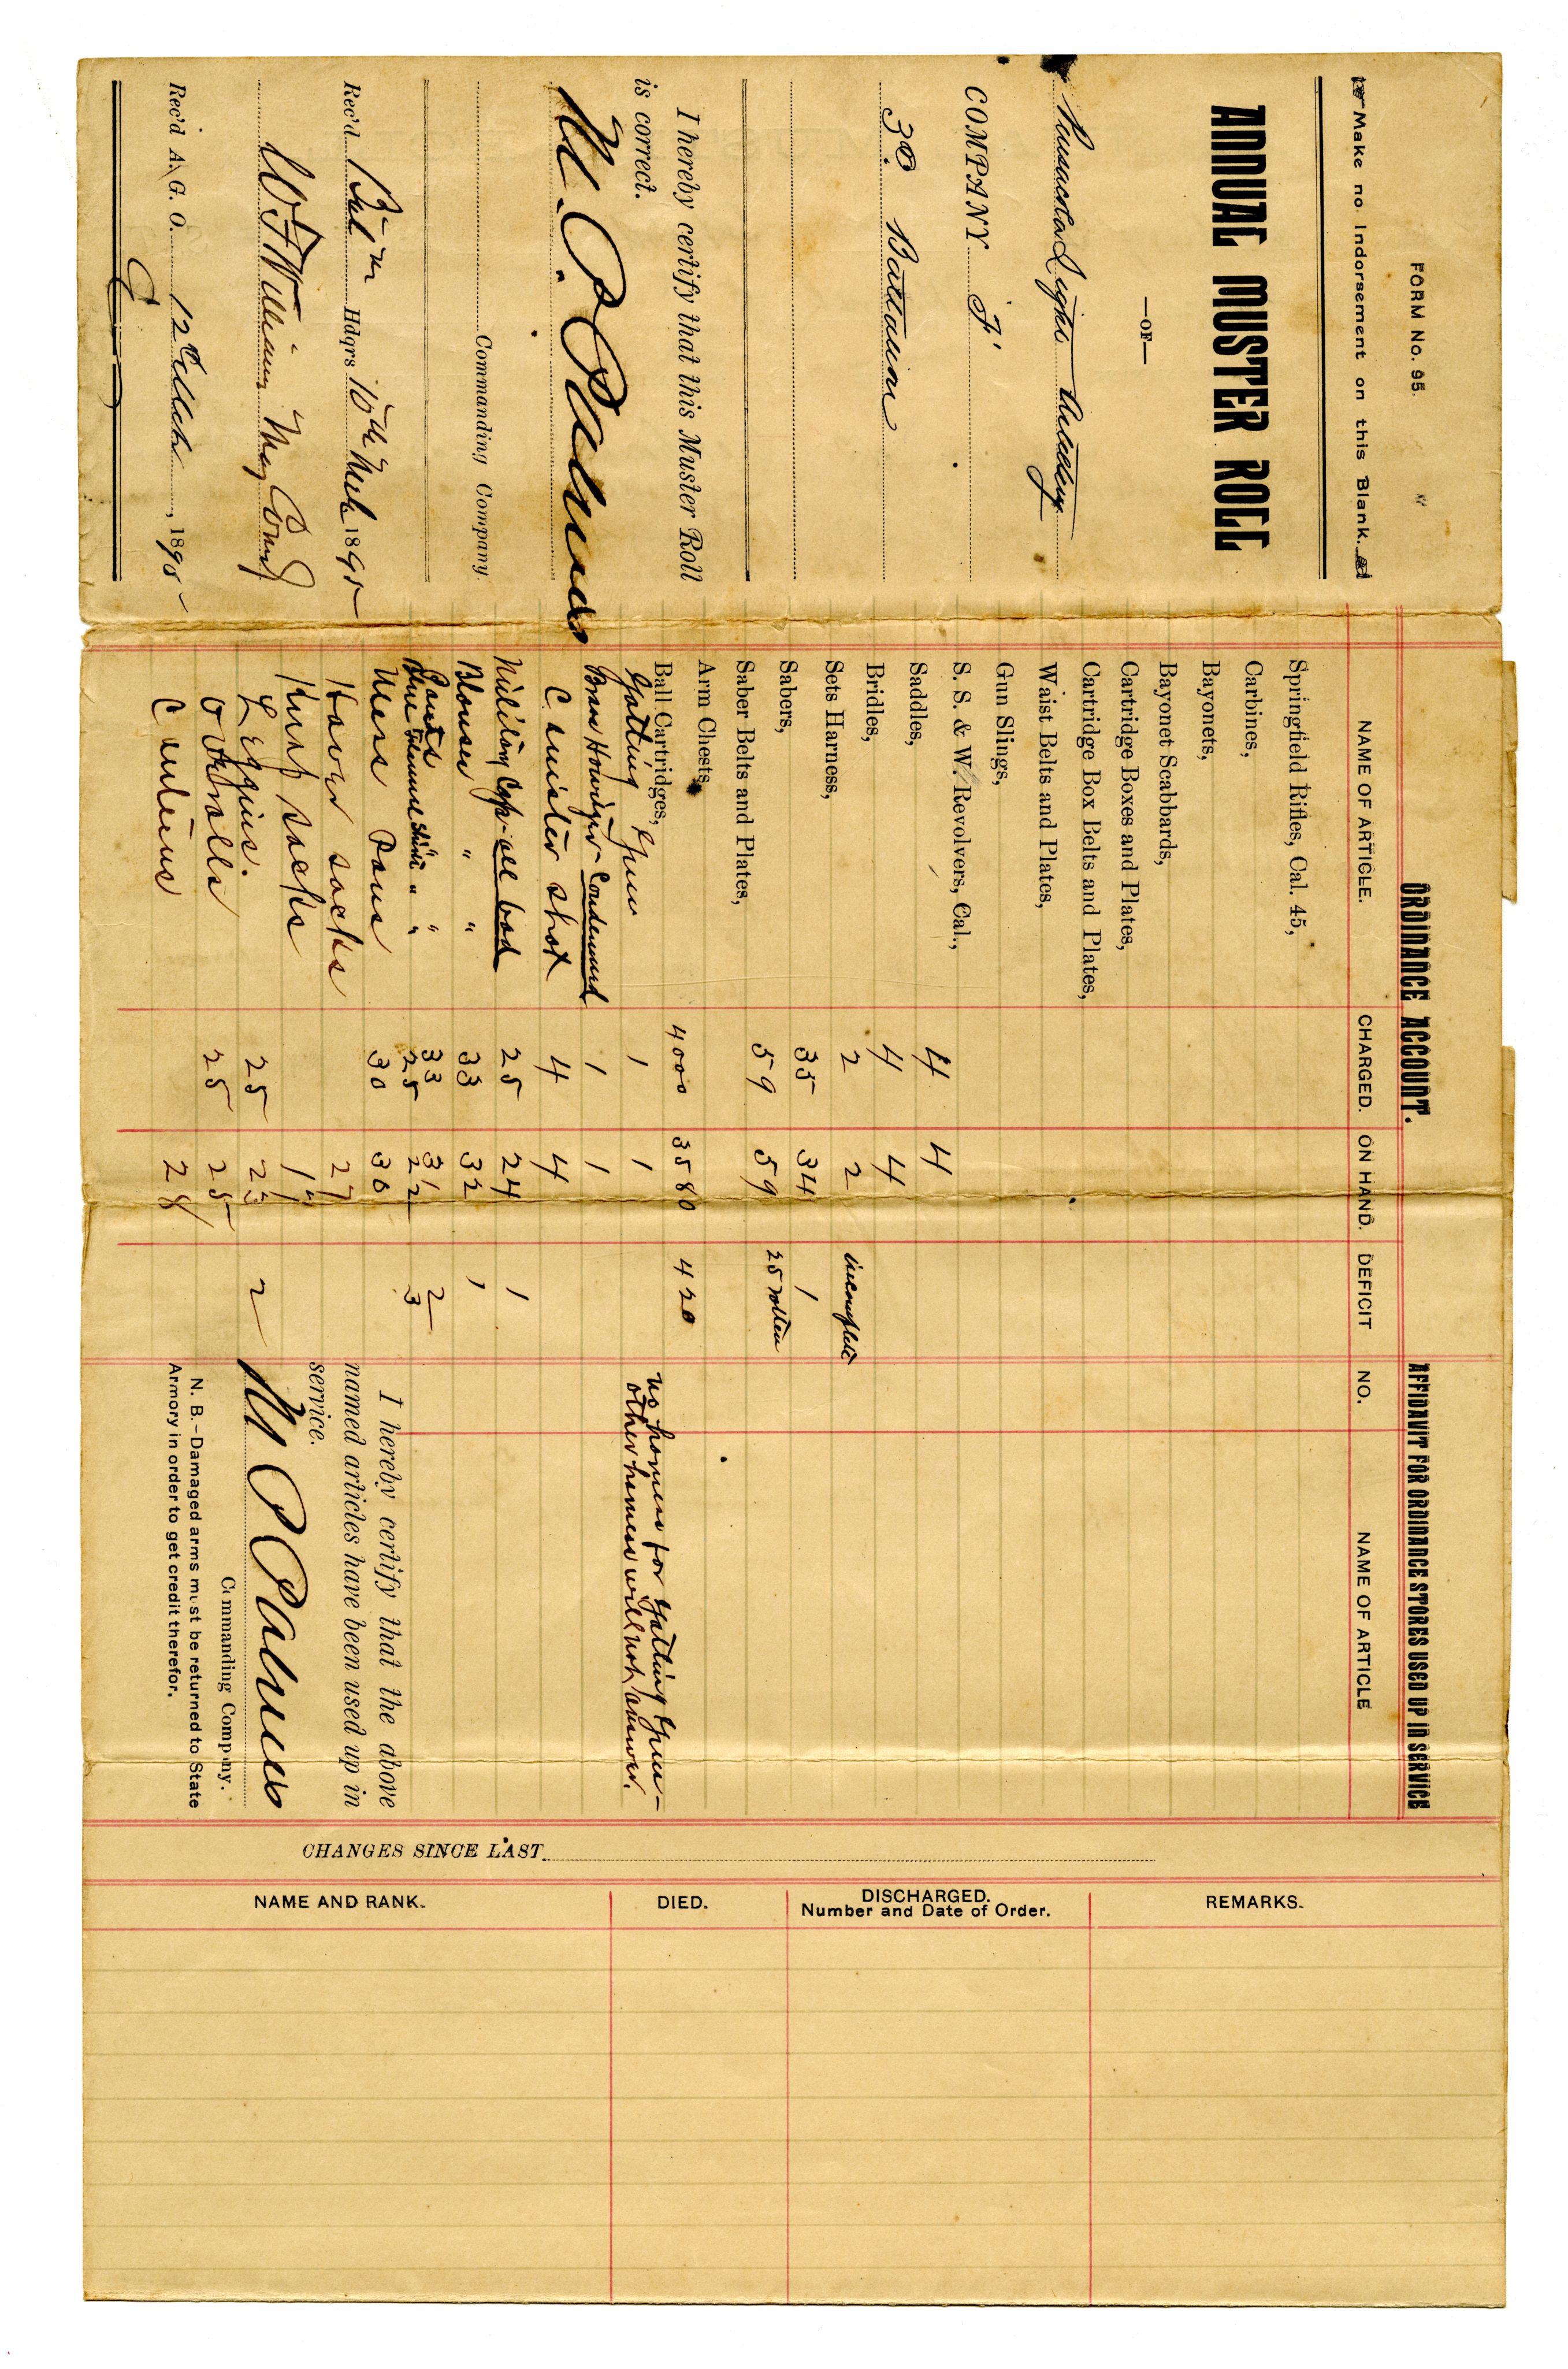 FORM No. 95.
Make no Indorsement on this Blank.
ANNUAL MUSTER ROLL
—OF—
Pensacola Light Artillery
COMPANY 'F'
3d Battalion
I hereby certify that this Muster Roll
is correct.
Commanding Company.
Rec'd Hdqrs 10th Mch 1895
W F Williams Maj Comdg
Rec'd A. G. O. 12 March, 1895
ORDINANCE ACCOUNT.
NAME OF ARTICLE. CHARGED. ON HAND. DEFICIT
Springfield Rifles, Cal. 45,
Carbines,
Bayonets,
Bayonet Scabbards,
Cartridge Boxes and Plates,
Cartridge Box Belts and Plates,
Waist Belts and Plates,
Gun Slings,
S. S. & W. Revolvers, Cal.,
Saddles, 4 4
Bridles, 4 4
Sets Harness, 2 2 incomplete
Sabers, 35 34 1
Saber Belts and Plates, 59 59 25 rotten
Arm Chests,
Ball Cartridges, 4000 3580 420
Gatling Gun 1 1
Brass Howitzer - Condemned 1 1
Canister shot 4 4
Military Caps - all bad 25 24 1
Blouses " " 33 32 1
Pants " " 33 31 2
Blue Flannel Shirts " " 25 22 3
Mess Pans 30 30
Haver sacks 27
Knap sacks 15
Leggins 25 23 2
Overalls 25 25
Canteens 28
AFFIDAVIT FOR ORDINANCE STORES USED UP IN SERVICE
NO. NAME OF ARTICLE
no harness for Gatling Gun—
other harness will not answer.
I hereby certify that the above
named articles have been used up in
service.
Commanding Company.
N. B.—Damaged arms must be returned to State
Armory in order to get credit therefor.
CHANGES SINCE LAST
NAME AND RANK. DIED. DISCHARGED. REMARKS.
Number and Date of Order.